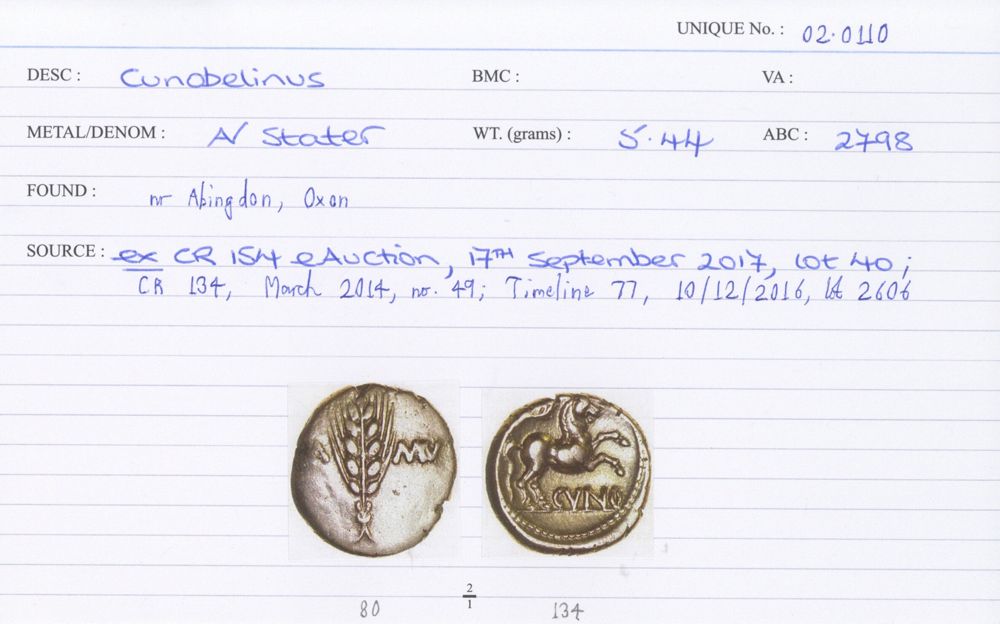 UNIQUE No. : 02.0110
DESC : Cunobelinus BMC : VA :
METAL/DENOM : A/ Stater WT. (grams) : 5.44 ABC : 2798
FOUND : nr Abingdon, Oxon
SOURCE : ex CR 154 eAuction, 17TH September 2017, lot 40;
CR 134, March 2014, no. 49; Timeline 77, 10/12/2016, lot 2606
MV
CVNO
2
1
80 134